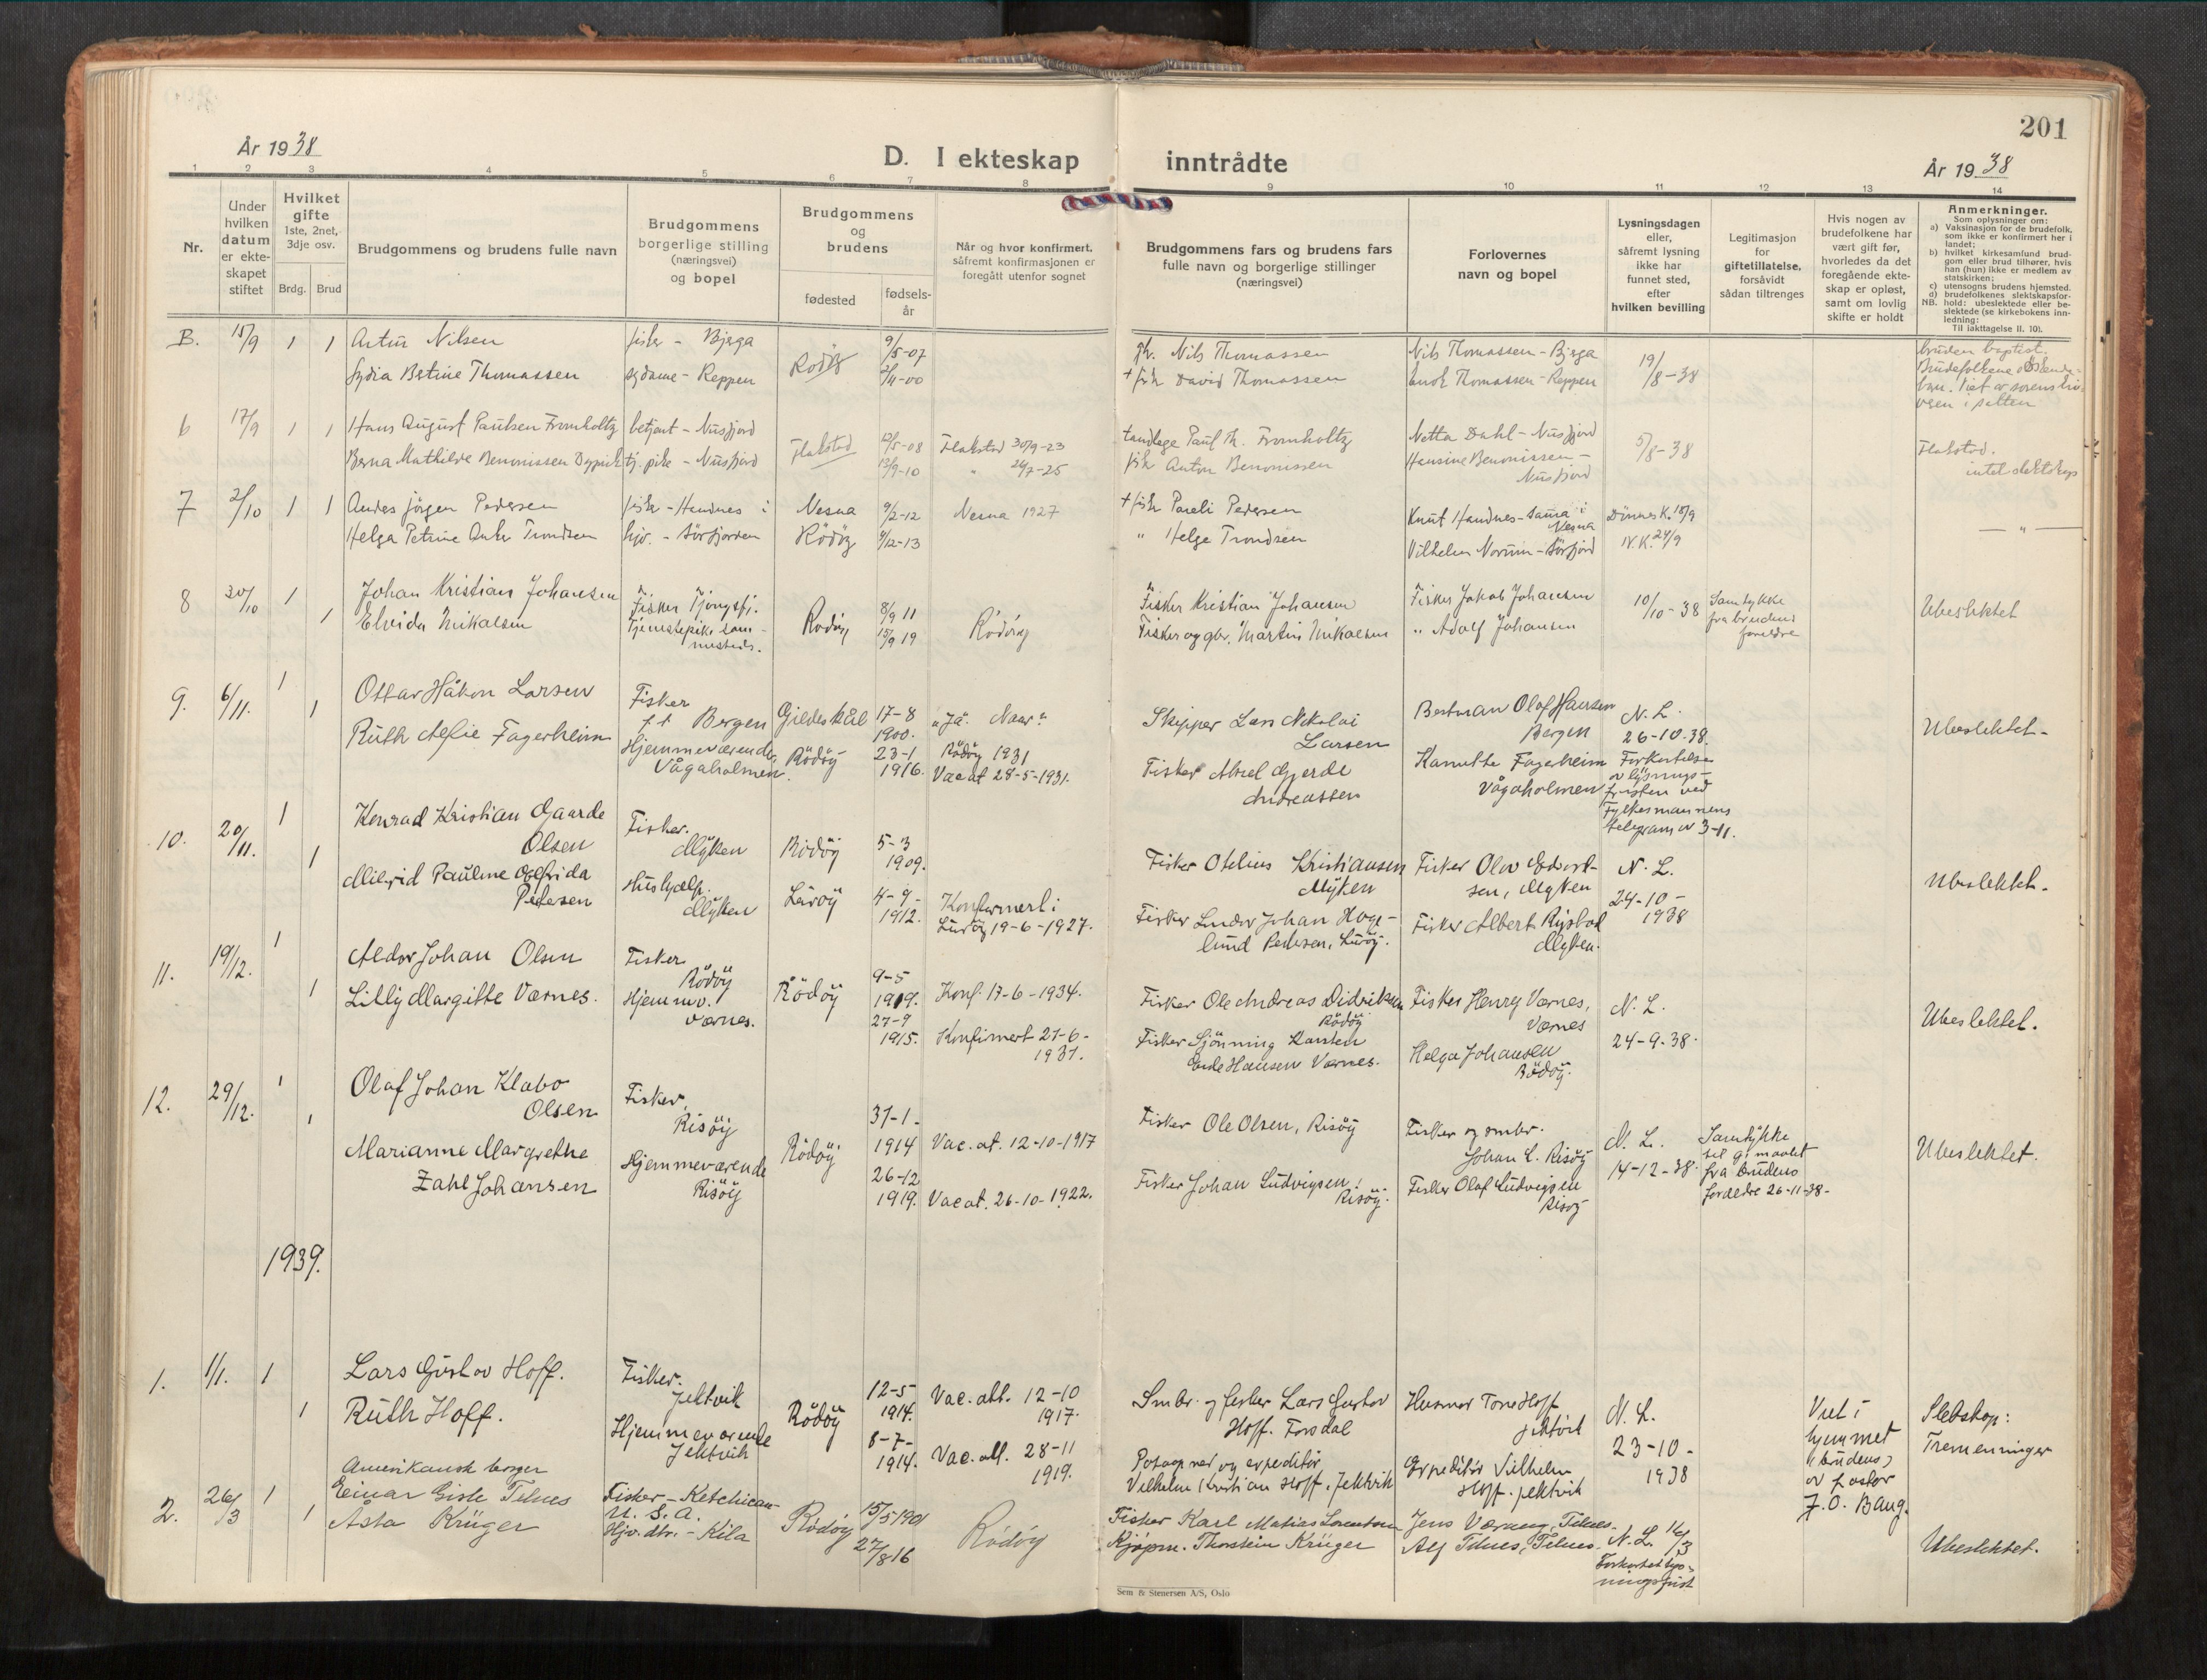 201
År 1938
D. I ekteskap inntrådte
År 1938
1 2 3 4 5 6 7 8 9 10 11 12 13 14
Nr.
Under hvilken datum er ekte-skapet stiftet
Hvilket gifte 1ste, 2net, 3dje osv.
Brdg. Brud
Brudgommens og brudens fulle navn
Brudgommens borgerlige stilling (næringsvei) og bopel
Brudgommens og brudens
fødested
fødsels-år
Når og hvor konfirmert, såfremt konfirmasjonen er foregått utenfor sognet
Brudgommens fars og brudens fars fulle navn og borgerlige stillinger (næringsvei)
Forlovernes navn og bopel
Lysningsdagen eller, såfremt lysning ikke har funnet sted, efter hvilken bevilling
Legitimasjon for giftetillatelse, forsåvidt sådan tiltrenges
Hvis nogen av brudefolkene har vært gift før, hvorledes da det foregående ekte-skap er opløst, samt om lovlig skifte er holdt
Anmerkninger.
Som oplysninger om:
a) Vaksinasjon for de brudefolk, som ikke er konfirmert her i landet;
b) hvilket kirkesamfund brud-gom eller brud tilhører, hvis han (hun) ikke er medlem av statskirken;
c) utensogns brudens hjemsted.
d) brudefolkenes slektskapsfor-
NB. hold: ubeslektede eller be-slektede (se kirkebokens inn-ledning:
Til iakttagelse II. 10).
B. 15/9 1 1 Artur Nilsen fisker - Bjerga Rødøy 9/5-07 Nils Thomassen Nils Thomassen - Bjerga 19/8-38 bruden baptist.
Lydia Betine Thomassen sydame - Reppen 2/11-00 + fisk David Thomassen Enok Thomassen - Reppen Brudefolkene
6 17/9 1 1 Hans August Paulsen Fromholtz betjent - Nusfjord Flakstad 12/5-08 Flakstad 30/9-23 tandlege Paul Th. Fromholtz Netta Dahl - Nusfjord 5/8-38 Flakstad.
Berna Mathilde Benonissen Dypvik tj. pike - Nusfjord 13/9-10 " 26/7-25 fisk Anton Benonissen Hansine Benonissen - Nusfjord intet slektskap
7 2/10 1 1 Anders Jørgen Pedersen fisker - Handnes i Nesna 9/2-12 Nesna 1927 + fisk Pareli Pedersen Knut Handnes - samme i Nesna Dönnes K. 18/9
Helga Petrine Anker Trondsen hjv. - Sörfjorden Rödöy 4/12-13 " Helge Trondsen Vilhelm Norum - Sörfjord N. K. 24/9 - " -
8 30/10 1 Johan Kristian Johansen Fisker Tjongsfj. Rødøy 8/9 11 Rödöy Fisker Kristian Johansen Fisker Jakob Johansen 10/10-38 Samtykke fra brudens foreldre Ubeslektet
1 Elvida Mikalsen Tjenestepike sam-mesteds. 15/9 19 Fisker og gbr. Martin Mikalsen " Adolf Johansen
9. 6/11. 1 Ottar Håkon Larsen Fisker f.t. Bergen Gildeskål 17-8 1900. "Ja". Naar? Skipper Lars Nikolai Larsen Bestman Olaf Hansen Bergen N. L. 26-10-38. Ubeslektet -
1 Ruth Alfie Fagerheim Hjemmeværende, Vågaholmen. Rödöy 23-1 1916. Rödöy 1931 Vac at 28-5-1931. Fisker Aksel Gjerde Andreassen Kanutte Fagerheim Vågaholmen Forkortelse av lysnings-fristen ved Fylkesmannens telegram av 3-11.
10. 20/11. 1 Konrad Kristian Gaarde Olsen Fisker. Myken Rödöy 5-3 1909. Fisker Otelius Kristiansen Myken Fisker Olav Edvart-sen, Myken N. L. 24-10-1938 Ubeslektet.
1 Milrid Pauline Oefrida Pedersen Hushjelp. Myken Luröy 4-9-1912. Konfirmert i Luröy 19-6-1927. Fisker Lindor Johan Hage-lund Pedersen, Luröy. Fisker Albert Rystad Myken.
11. 19/12. 1 Aldor Johan Olsen Fisker Rödöy Rödöy 9-5 1909. Konf. 17-6-1934. Fisker Ole Andreas Didriksen Rödöy Fisker Henry Værnes, Værnes N. L. 24-9-38. Ubeslektet.
1 Lilly Margitte Værnes. Hjemmev. Værnes. 27-9 1915. Konfirmert 21-6-1931. Fisker Sjönning Karsten Ende Hansen Værnes. Helga Johansen Rödöy.
12. 29/12. 1 Olaf Johan Klabo Olsen Fisker, Risöy Rödöy 31-1-1914 Vac. at. 12-10-1917 Fisker Ole Olsen, Risöy Fisker og smbr. Johan L. Risöy N. L. 14-12-38. Samtykke til g.maalet fra brudens foreldre 26-11-38. Ubeslektet.
1 Marianne Margrethe Zahl Johansen Hjemmeværende Risöy 26-12 1919. Vac at. 26-10-1922. Fisker Johan Ludvigsen, Risöy. Fisker Olaf Ludvigsen Risöy
1939.
1. 1/1. 1 Lars Gustav Hoff. Fisker. Jektvik Rödöy 12-5 1914. Vac. att. 12-10 1917. Smbr. og fisker Lars Gustav Hoff. Forsdal Husmor Tone Hoff Jektvik N. L. 23-10-1938 Viet i hjemmet (brudens) av pastor J. O. Baug. Sletskap: Tremenninger
1 Ruth Hoff. Hjemmeværende Jektvik 8-7-1914. Vac. att. 28-11 1919. Postaapner og expeditör Vilhelm Kristian Hoff, Jektvik Expeditör Vilhelm Hoff. Jektvik
Amerikansk borger
2. 26/3 1 Einar Gisle Telnes Fisker - Ketchican - U. S. A. Rödöy 15/5 1901 Rödöy Fisker Karl Matias Lorentsen Jens Værang, Telnes. N. L. 16/3 Ubeslektet.
1 Åsta Krüger Hjv. dtr. - Kila 27/8 16 Kjøpm. Thorstein Krüger Alf Telnes, Telnes. Forkortet lys-ningsfrist
Sem & Stenersen A/S, Oslo